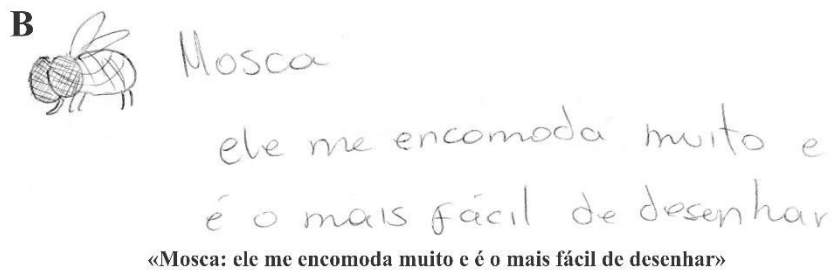 B
Mosca
ele me encomoda muito e
é o mais fácil de desenhar
«Mosca: ele me encomoda muito e é o mais fácil de desenhar»